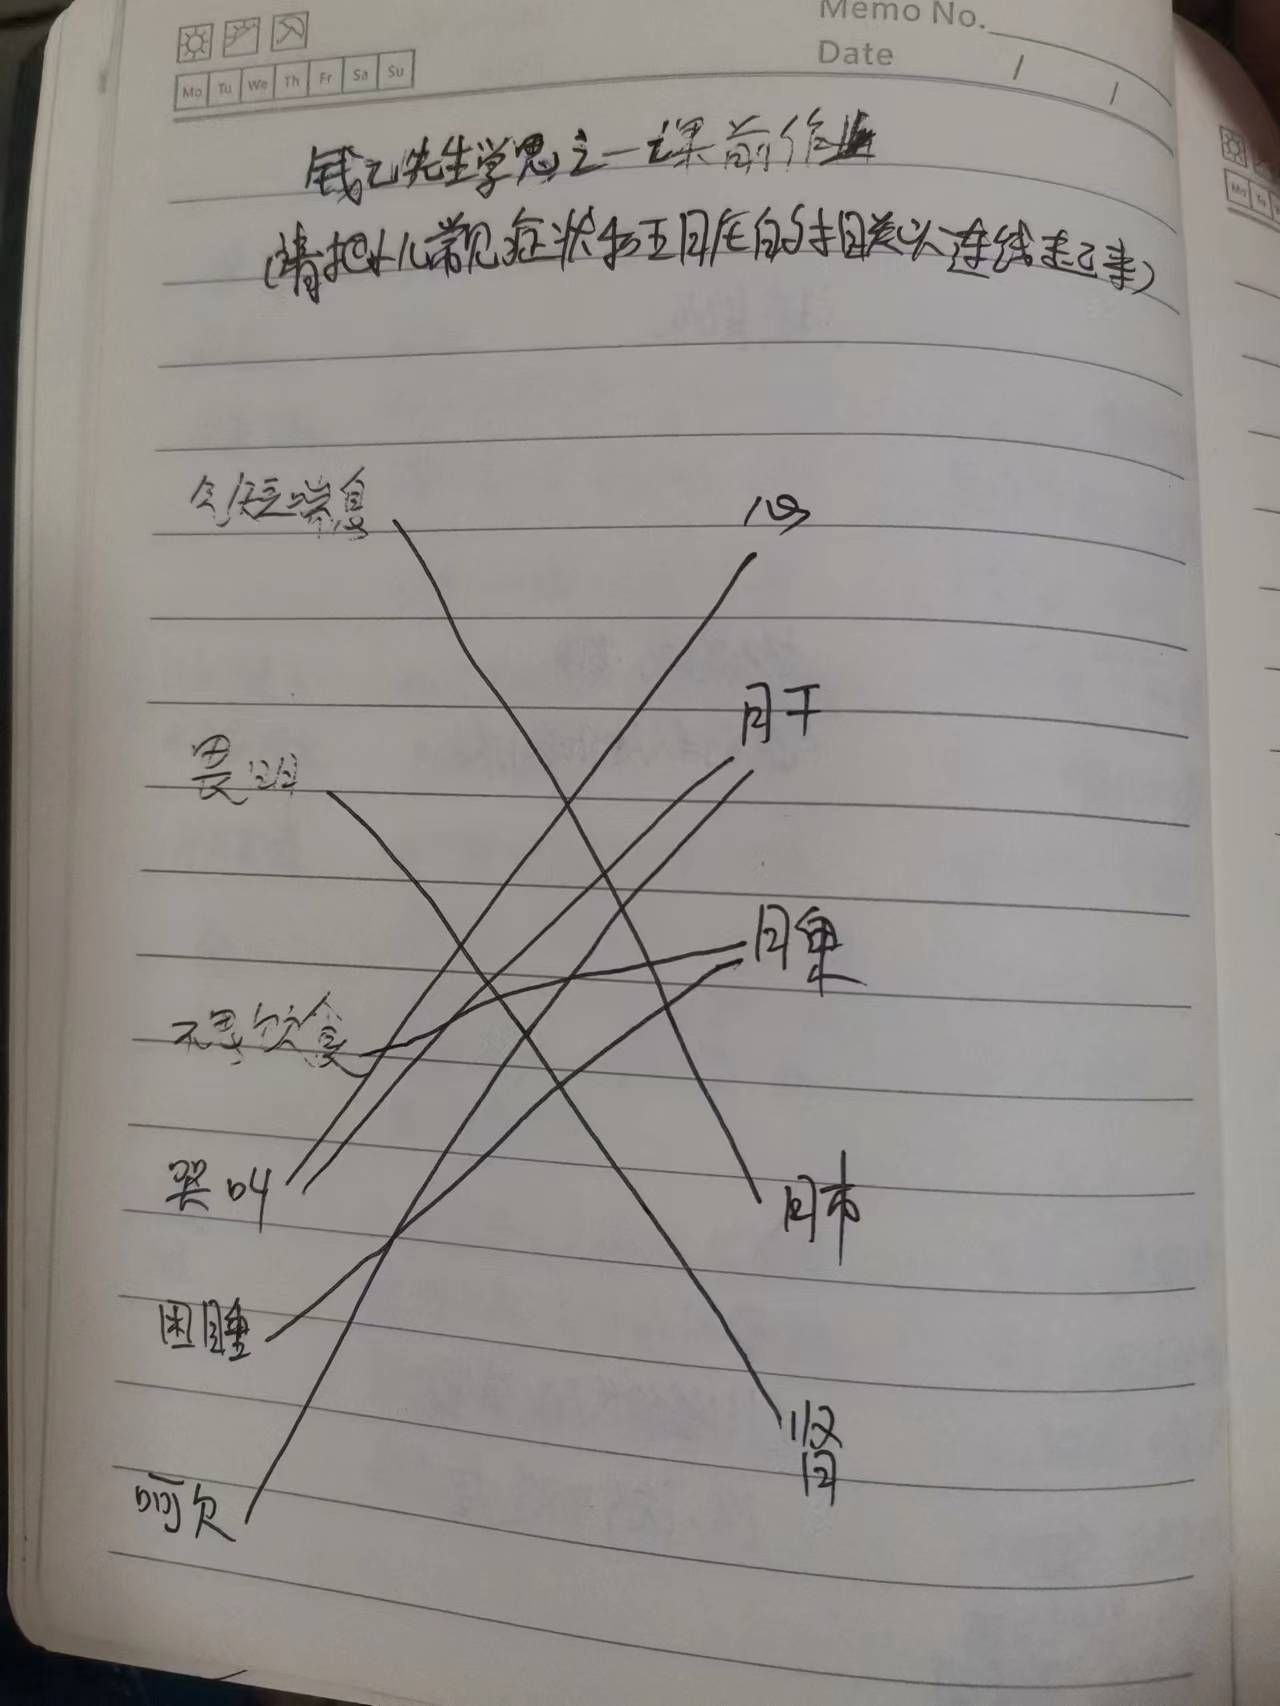 Memo No.
Date / /
Mo Tu We Th Fr Sa Su
钱乙先生学思之一课前作业
(请把小儿常见症状与五脏的相关以连线起来)
气短喘息
心
肝
畏明
脾
不思饮食
哭叫
肺
困睡
肾
呵欠
Mo Tu